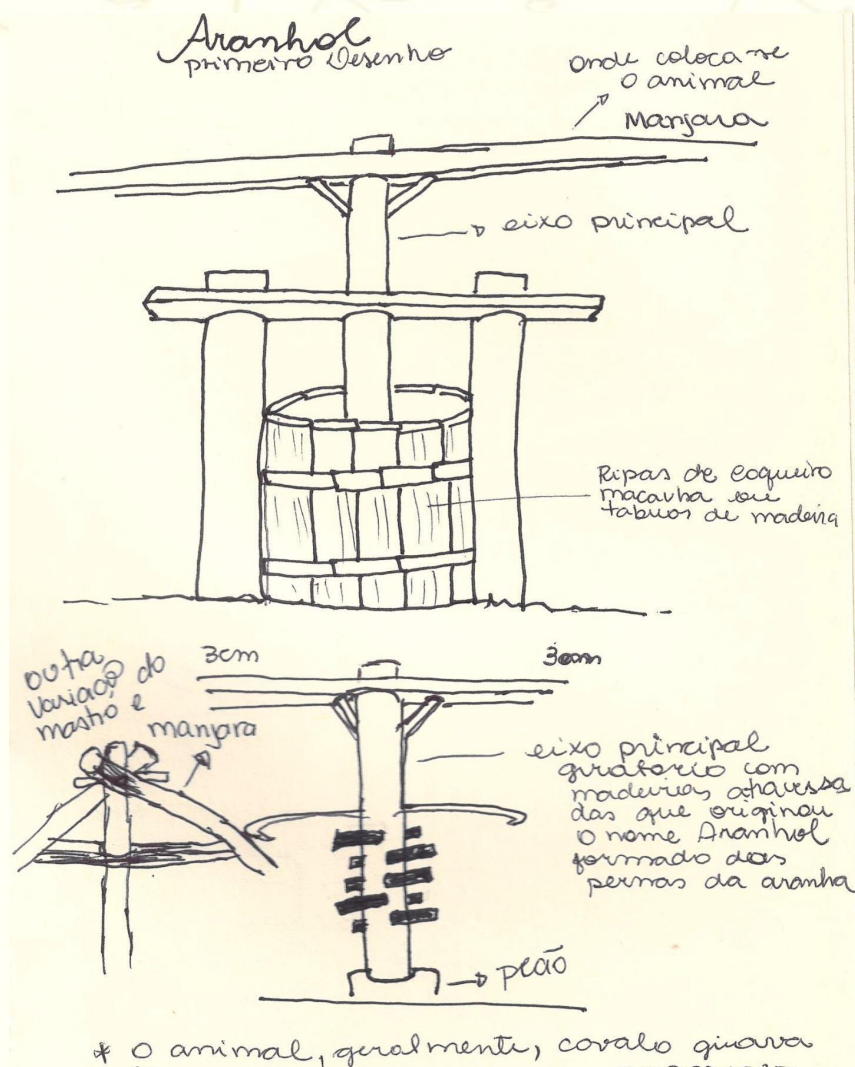 Aranhol
primeiro Desenho
Onde coloca-se
o animal
Manjara
eixo principal
Ripas de coqueiro
macauba ou
tabuas de madeira
3cm
3cm
outra
variação do
mastro e
manjara
eixo principal
giratorio com
madeiras atravessa
das que originou
o nome Aranhol
formado das
pernas da aranha
peão
* O animal, geralmente, cavalo girava